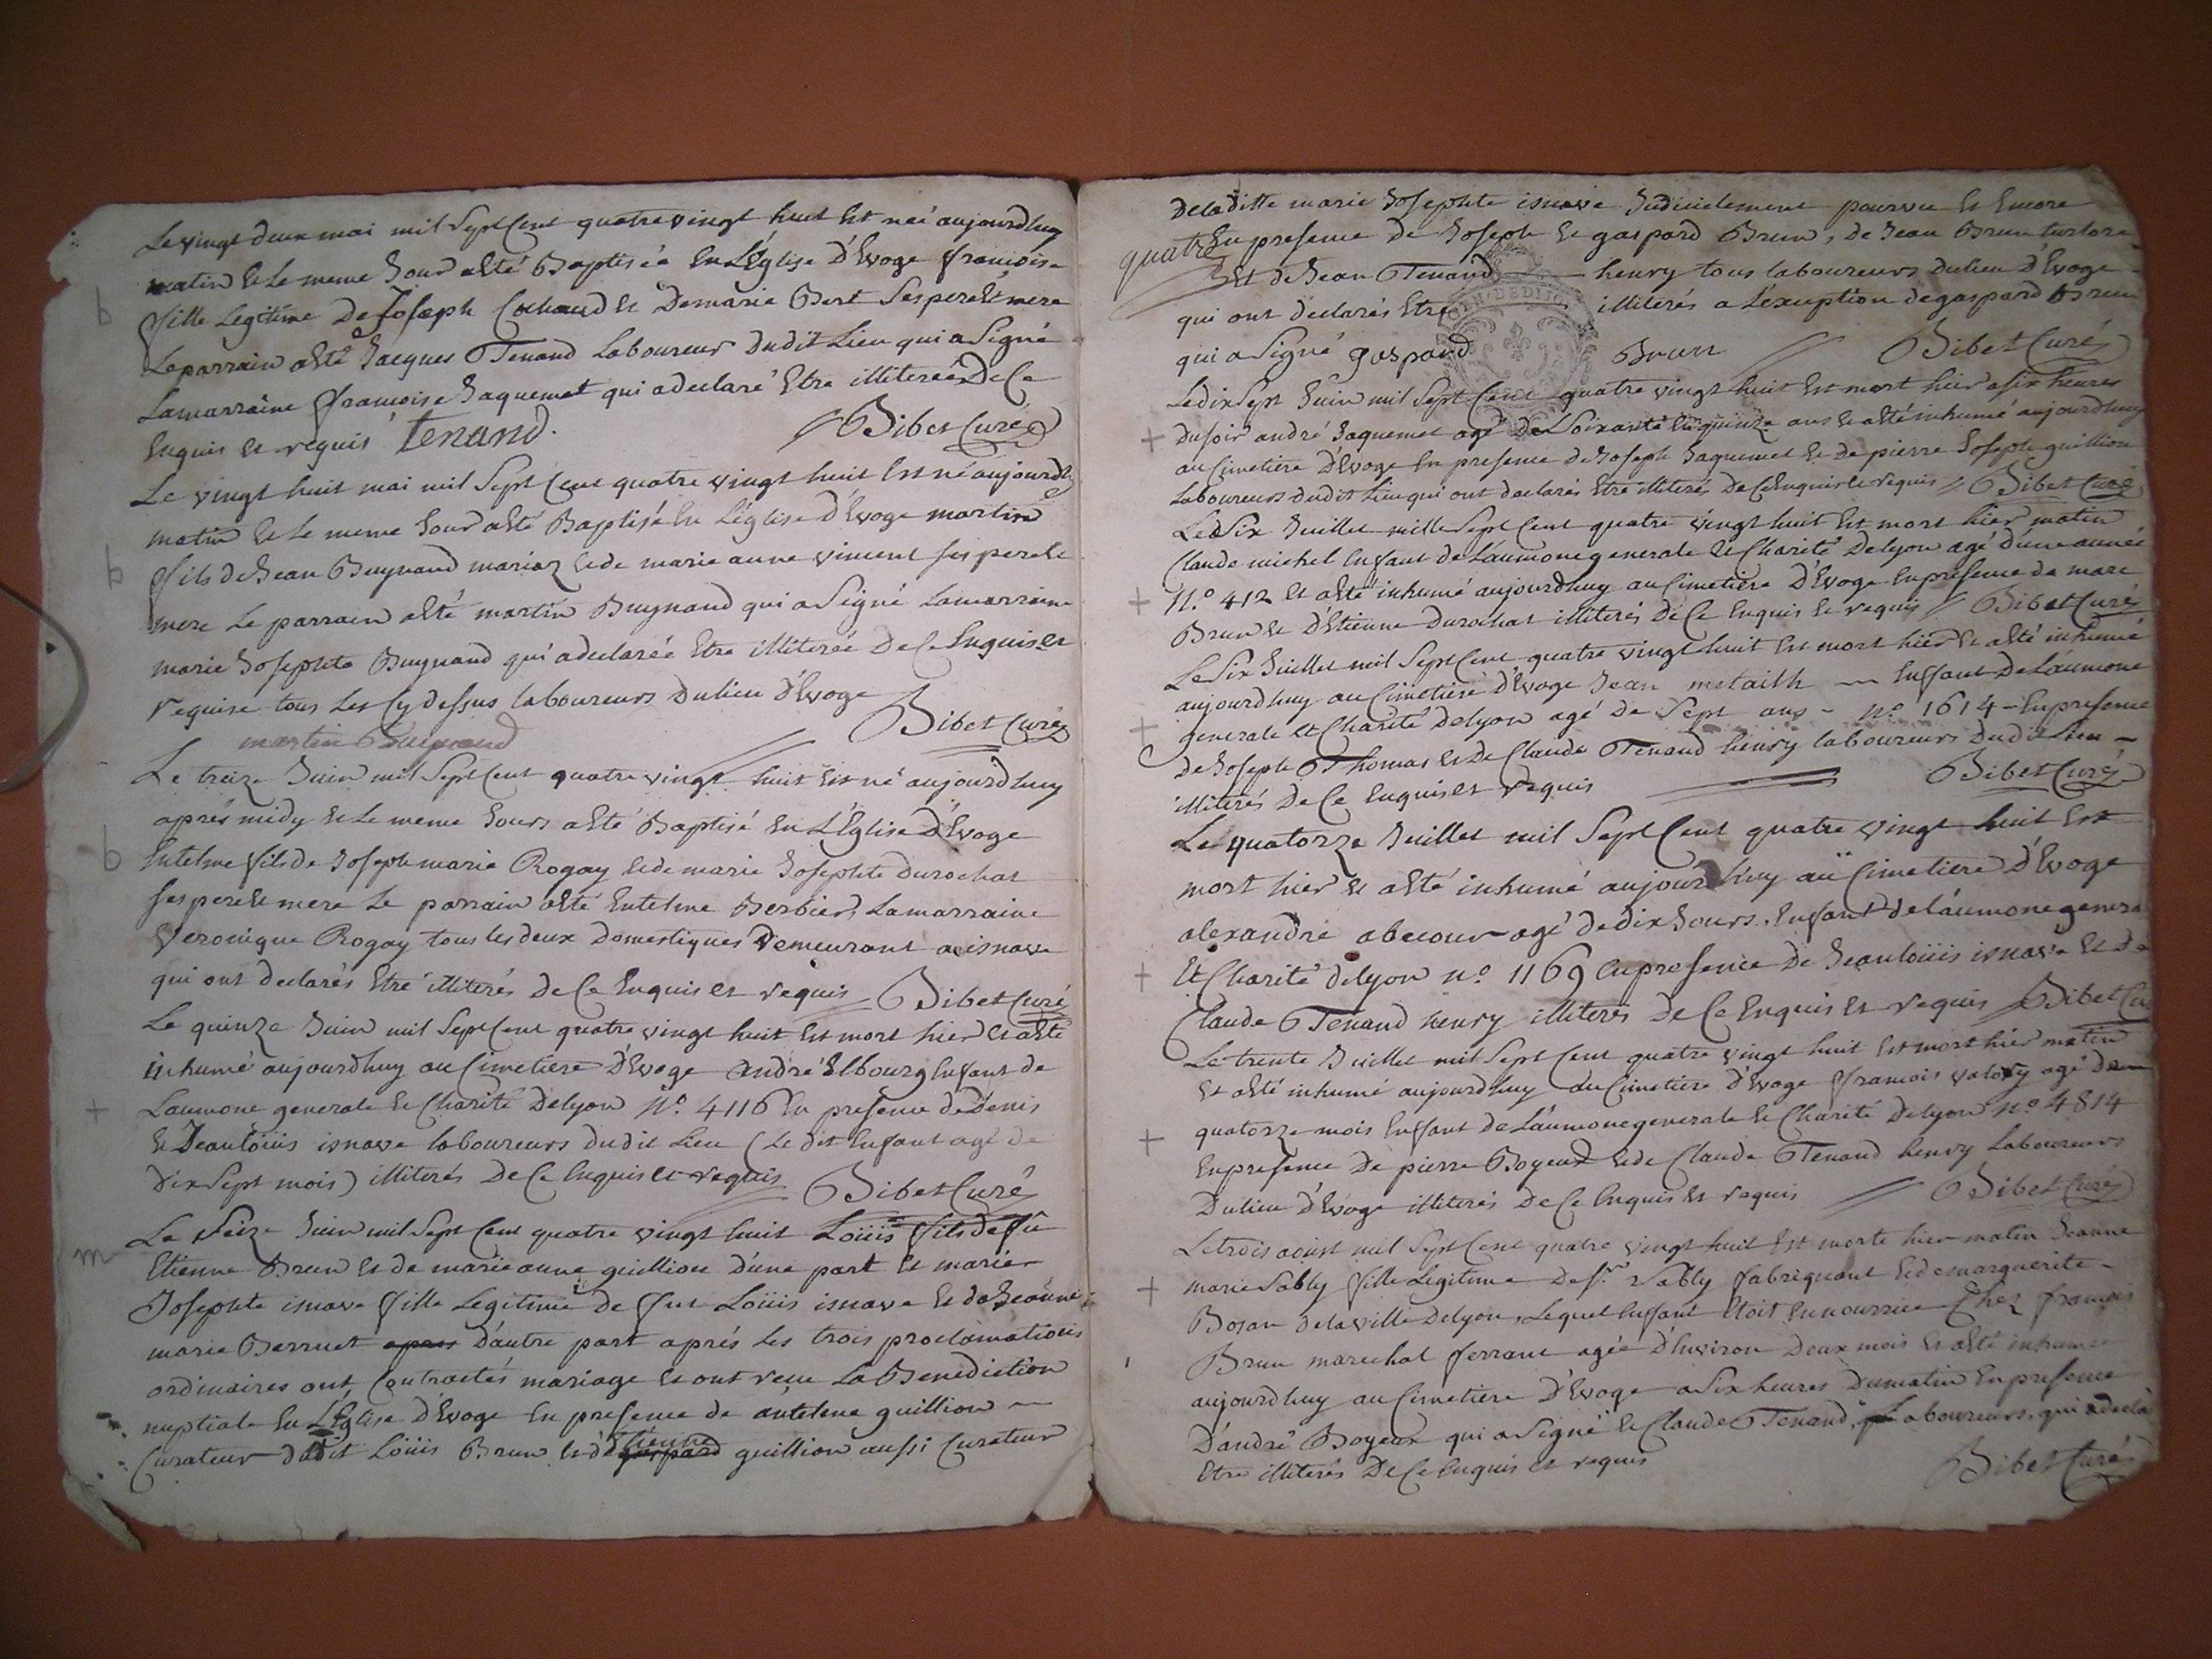 Le vingt deux mai mil Sept Cent quatre vingt huit Est née aujourdhuy
matin & Le meme Jour a Eté Baptisée En L'Eglise D'Evoge françoise
b
fille Legitime De Joseph Cochaud & De marie Bert Ses pere & mere
Le parrain a Eté Jacques Tenand Laboureur dudit Lieu qui a Signé
Lamarraine françoise Jaquemet qui a declaré Etre illiterée De Ce
Enquis et requis Tenand. Bibet Curé
Le vingt huit mai mil Sept Cent quatre vingt huit Est né aujourdh
matin & Le meme Jour a Eté Baptisé En L'église d'Evoge martin
b
fils de Jean Buynand mariaz & de marie anne vincent ses pere &
mere Le parrain a Eté martin Buynand qui a Signé Lamarraine
marie Josephte Buynand qui a declarée Etre illiterée De Ce Enquis et
requise tous Les Cy dessus laboureurs du lieu d'Evoge
martin Buynand Bibet Curé
Le treize Juin mil Sept Cent quatre vingt huit Est né aujourdhuy
aprés midy & Le meme Jours a Eté Baptisé En L'Eglise D'Evoge
b
Entelme fils de Joseph marie Rogay & de marie Josephte Durochat
ses pere & mere Le parrain a Eté Entelme Berbier, Lamarraine
Veronique Rogay tous les deux Domestiques Demeurant a isnave
qui ont declarés Etre illiterés De Ce Enquis et requis Bibet Curé
Le quinze Juin mil Sept Cent quatre vingt huit Est mort hier et a Eté
inhumé aujourdhuy au Cimetiere D'Evoge andré Elbourg Enfant de
+
Laumone generale & Charité De lyon N.º 4116 En presence de Denis
& Jean Loüis isnave laboureurs dudit Lieu (Le dit Enfant agé de
Dix Sept mois) illiterés De Ce Enquis et requis Bibet Curé
Le Seize Juin mil Sept Cent quatre vingt huit Loüis fils de fû
m
Etienne Brun et de marie anne guillion d'une part et marie
Josephte isnave fille Legitime de fut Loüis isnave et de Jeanne
marie Berruet apres D'autre part aprés Les trois proclamations
ordinaires ont Contractés mariage et ont reçu La Benediction
nuptiale En L'Eglise D'Evoge En presence de antelme guillion
Etienne
Curateur dudit Loüis Brun & de gaspard guillion aussi Curateur
De la ditte marie Josephte isnave Judicielement pourvu et Encore
quatre
En presence de Joseph & gaspard Brun, de Jean Brun
Et de Jean Tenand henry tous laboureurs du lieu d'Evoge
qui ont declarés Etre illiterés a L'exception de gaspard Brun
qui a Signé gaspard Brun Bibet Curé
Le dix Sept Juin mil Sept Cent quatre vingt huit Est mort hier a six heures
+
du soir andré Jaquemet agé De Soixante & quinze ans et a Eté inhumé aujourdhuy
au Cimetiere d'Evoge En presence de Joseph Jaquemet & de pierre Joseph guillion
Laboureurs dudit Lieu qui ont declarés Etre illiterés De Ce Enquis & requis Bibet Curé
Le Six Juillet mille Sept Cent quatre vingt huit Est mort hier matin
Claude michel Enfant de Laumone generale & Charité De lyon agé d'une année
+
N.º 412 et a Eté inhumé aujourdhuy au Cimetiere D'Evoge En presence de marc
Brun & D'Etienne Durochat illiterés De Ce Enquis & requis Bibet Curé
Le Six Juillet mil Sept Cent quatre vingt huit Est mort hier et a Eté inhumé
aujourdhuy au Cimetiere d'Evoge Jean metailh Enfant De Laumone
+
generale et Charité De lyon agé De Sept ans - N.º 1614 - En presence
de Joseph Thomas & De Claude Tenand henry laboureurs Dudit Lieu -
illiterés De Ce Enquis et requis Bibet Curé
Le quatorze Juillet mil Sept Cent quatre vingt huit Est
mort hier et a Eté inhumé aujourdhuy au Cimetiere d'Evoge
alexandre abecour agé de dix Jours, Enfant de láumone genera
+
Et Charité de lyon nº. 1169 En presence De Jean loüis isnave Et De
Claude Tenand henry illiterés De Ce Enquis et requis Bibet Cu
Le trente Juillet mil Sept Cent quatre vingt huit Est mort hier matin
Et a Eté inhumé aujourdhuy au Cimetiere d'Evoge françois valory agé De
+
quatorze mois Enfant de Láumone generale & Charité De lyon nº. 4814
En presence De pierre Boyeux & de Claude Tenand henry Laboureurs
Du lieu d'Evoge illiterés De Ce Enquis et requis Bibet Curé
Le trois aoust mil Sept Cent quatre vingt huit Est morte hier matin Jeanne
+
marie Sably fille Legitime De Sr. Sably fabriquant & de marguerite
Bosan de la ville De lyon, Lequel Enfant Etoit En nourrice Chez françois
Brun marechal ferrant agée d'Environ Deux mois et a Eté inhumé
aujourdhuy au Cimetiere D'Evoge a Six heures Du matin En presence
D'andré Boyeux qui a Signé & Claude Tenand, Laboureurs, qui a declaré
Etre illiterés De Ce Enquis et requis Bibet Curé